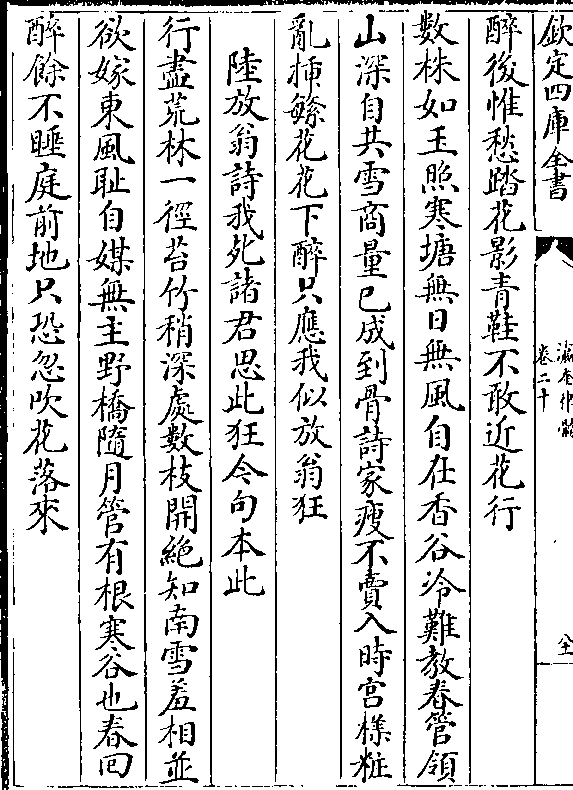 欽定四庫全書
瀛奎律髓
卷二十
醉後惟愁踏花影青鞋不敢近花行
數株如玉照寒塘無日無風自在香谷冷難教春管領
山深自共雪商量已成到骨詩家瘦不賣入時宮樣粧
亂揷繁花花下醉只應我似放翁狂
陸放翁詩我死諸君思此狂今句本此
行盡荒林一徑苔竹稍深處數枝開絶知南雪羞相並
欲嫁東風恥自媒無主野橋隨月管有根寒谷也春回
醉餘不睡庭前地只恐忽吹花落來